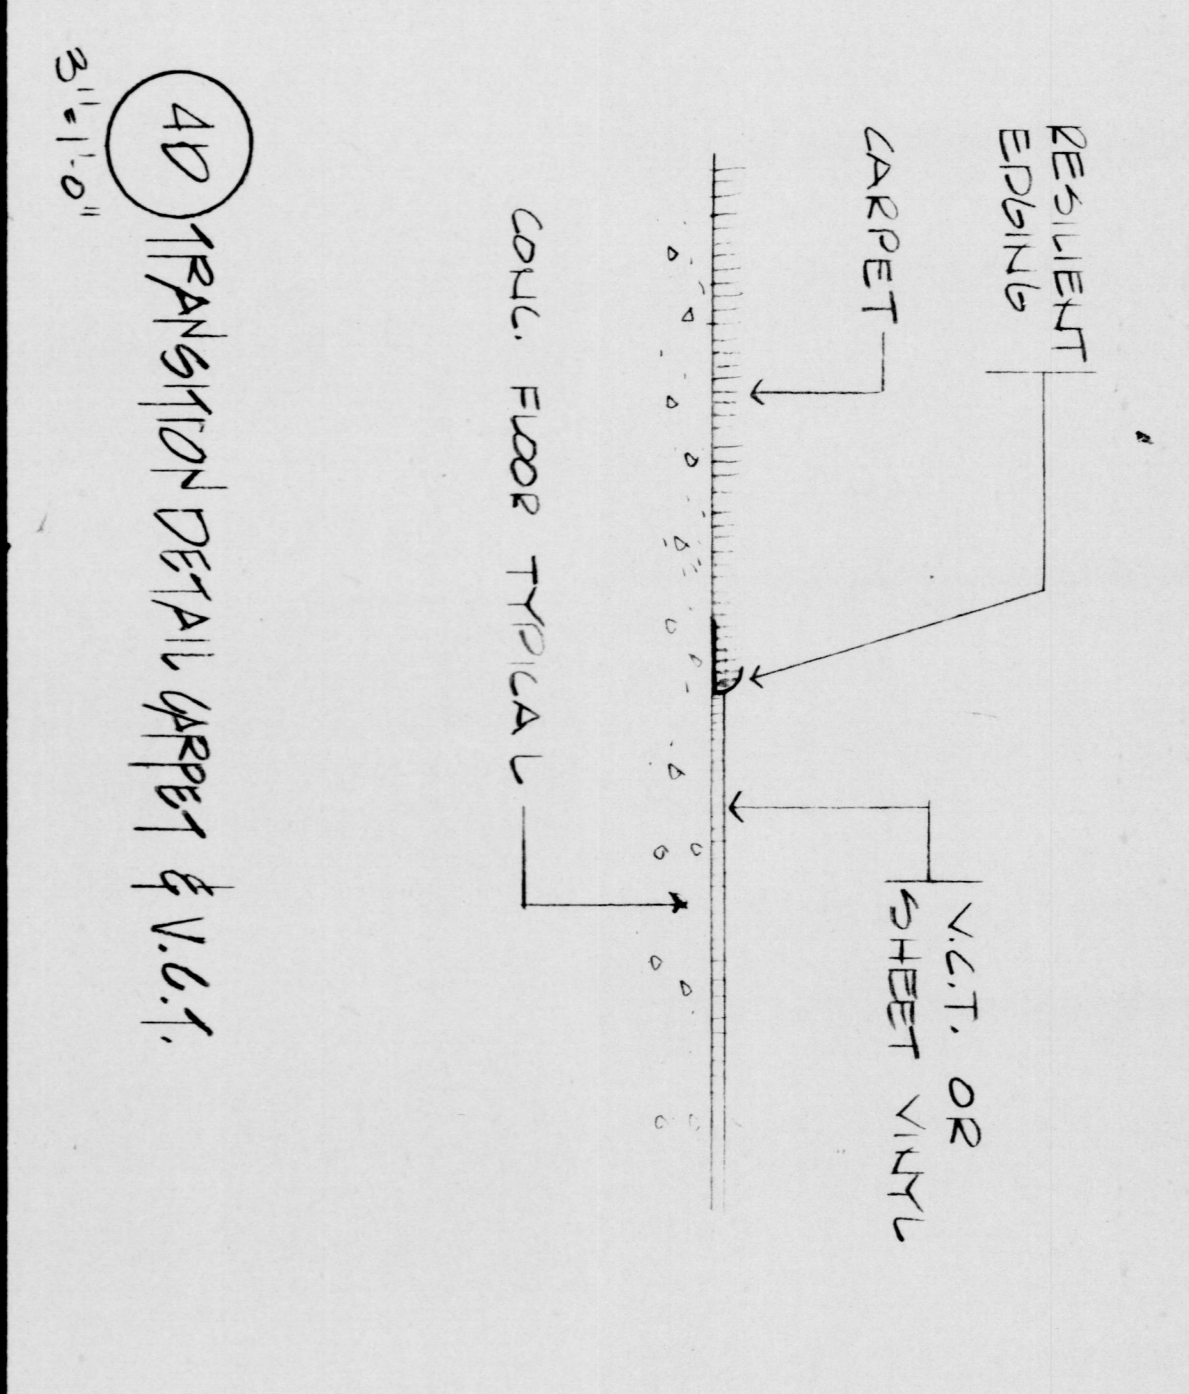 RESILIENT
EDGING
CARPET
V.C.T. OR
SHEET VINYL
CONC. FLOOR TYPICAL
4D
TRANSITION DETAIL CARPET & V.C.T.
3"=1'-0"